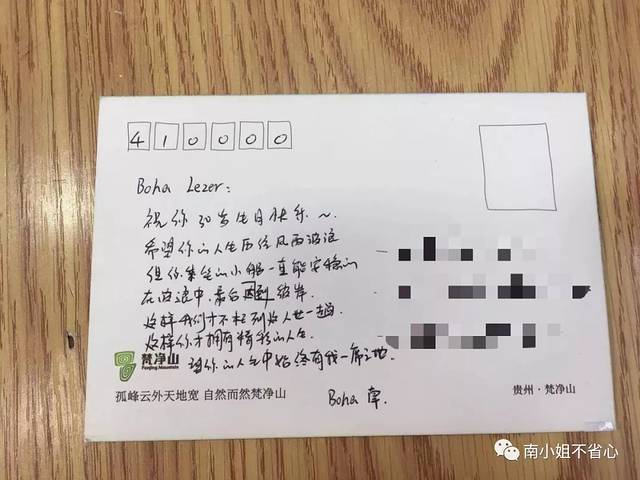 410000
Boha Lezer:
祝你30岁生日快乐~
希望你的人生历经风雨波浪
但你乘坐的小船一直能安稳的
在波浪中,最后回到彼岸.
这样我们才不枉到此人世一趟
这样你才拥有精彩的人生.
梵净山
Fanjing Mountain
望你的人生中始终有我一席之地.
孤峰云外天地宽 自然而然梵净山
Boha 南.
贵州·梵净山
南小姐不省心